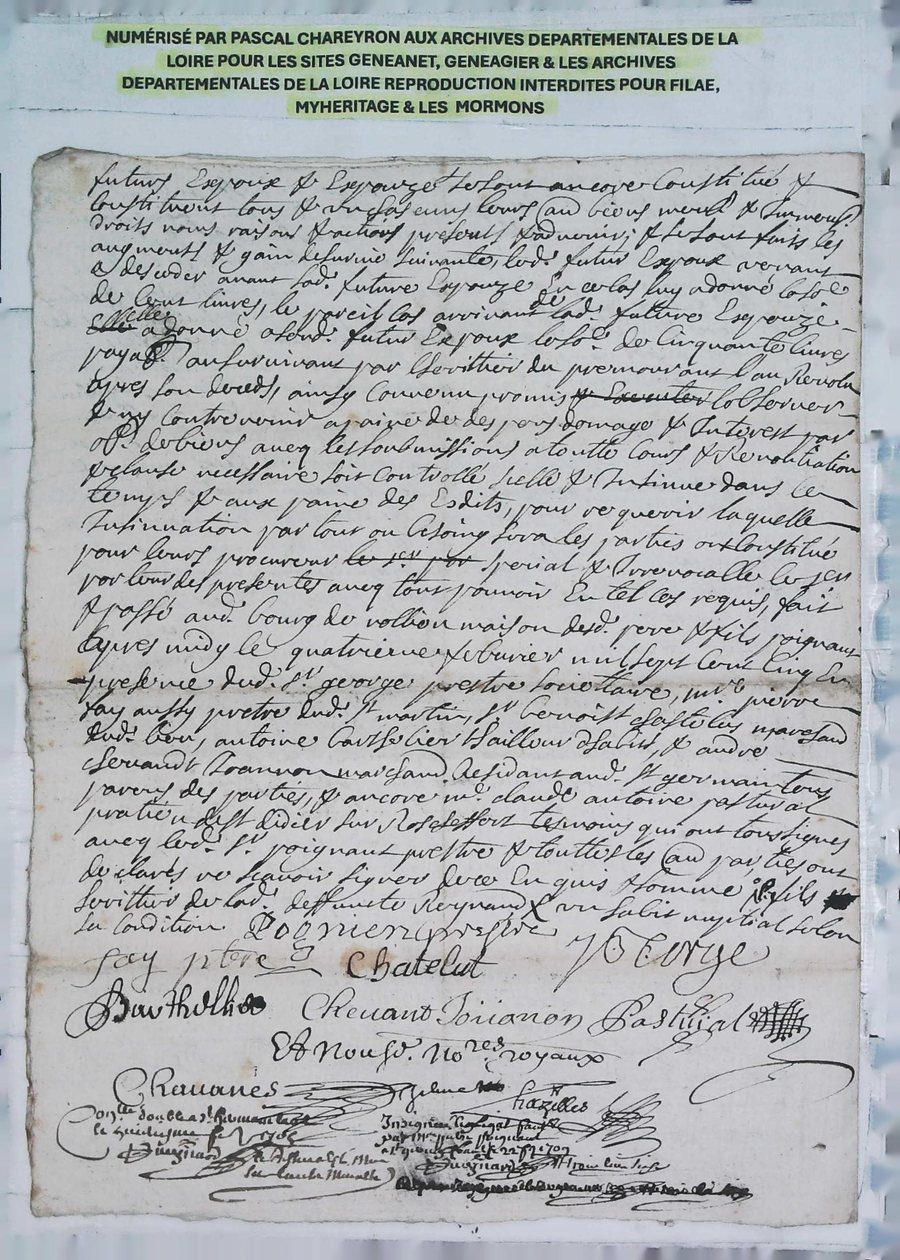 NUMÉRISÉ PAR PASCAL CHAREYRON AUX ARCHIVES DEPARTEMENTALES DE LA
LOIRE POUR LES SITES GENEANET, GENEAGIER & LES ARCHIVES
DEPARTEMENTALES DE LA LOIRE REPRODUCTION INTERDITES POUR FILAE,
MYHERITAGE & LES MORMONS
futurs Espoux & Espouze se sont ancore Constitué &
Constituent tous & un chascuns leurs au biens meub & Immeub
droits noms raisons & actions présents & advenir, & se sont faits les
augments & gain de survie suivants, led. futur Espoux venant
a desceder avant lad. future Espouze En ce cas luy a donné la so.
de Cent livres, le pareil cas arrivant de lad. future Espouze
Icelle a donné a sond. futur Espoux la so. de Cinquante livres
payab au survivant par l'heritier du premourant l'an Revolu
apres son deceds, ainsy Convenu promis l'observer
& ny Contrevenir a paine de despens domage & Interest par
ob. de biens aveq les soubmissions a toutte Cours & Renontiation
& clause necessaire soit Controllé scelle & Insinue dans le
temps & aux paine des Esdits, pour requerir laquelle
Insinuation par tour ou besoing sera les parties ont Constitué
pour leurs procureur special & Irrevocable le
porteur des presentes aveq tout pouvoir En tel cas requis, fait
& passé aud. bourg de maison desd. pere & fils poignant
apres midy le quatrieme febvrier mil sept Cent Cinq En
presence dud. Sr george prestre societaire, mre pierre
fay aussy pretre dud. St martin, Sr benoist marchand
dud. lieu, antoine barthelier tailleur d'habits, & andre
chevandt Joannon marchand Residant aud. St germain tous
parens des parties, & ancore mr. claude antoine pastural
pratitien de St didier sur Rochefort tesmoins qui ont tous signes
aveq led. Sr poignant prestre & touttes les au parties ont
declarés ne scavoir signer de ce Enquis & somme fils
heritier de lad. deffuncte Reynaud & un habit nuptial selon
sa condition Pognien prestre
fay ptre Chatelut George
Barthellier Chevant Joüanon Pasthural
Et Nous Nores royaux
Chavanes Chazelles